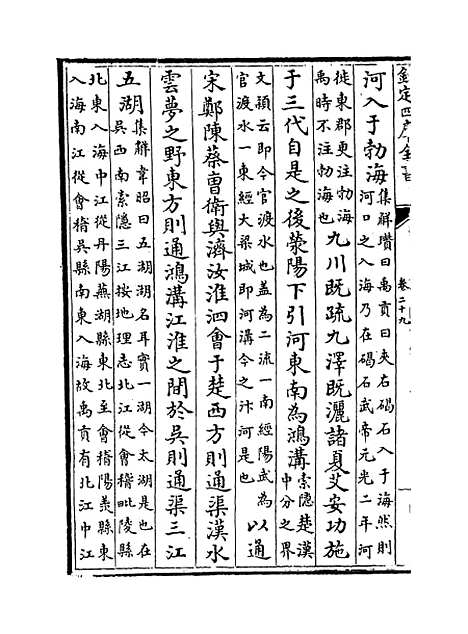 欽定四庫全書
卷二十九
河入于勃海
集解瓚曰禹貢曰夾右碣石入于海然則
河口之入海乃在碣石武帝元光二年河
徙東郡更注勃海
禹時不注勃海也
九川既疏九澤既灑諸夏艾安功施
于三代自是之後滎陽下引河東南為鴻溝
索隱楚漢
中分之界
文穎云即今官渡水也蓋為二流一南經陽武為
官渡水一東經大梁城即河溝今之汴河是也
以通
宋鄭陳蔡曹衛與濟汝淮泗會于楚西方則通渠漢水
雲夢之野東方則通鴻溝江淮之間於吳則通渠三江
五湖
集解韋昭曰五湖湖名耳實一湖今太湖是也在
吳西南索隱三江按地理志北江從會稽毗陵縣
北東入海中江從丹陽蕪湖縣東北至會稽陽羨縣東
入海南江從會稽吳縣南東入海故禹貢有北江中江